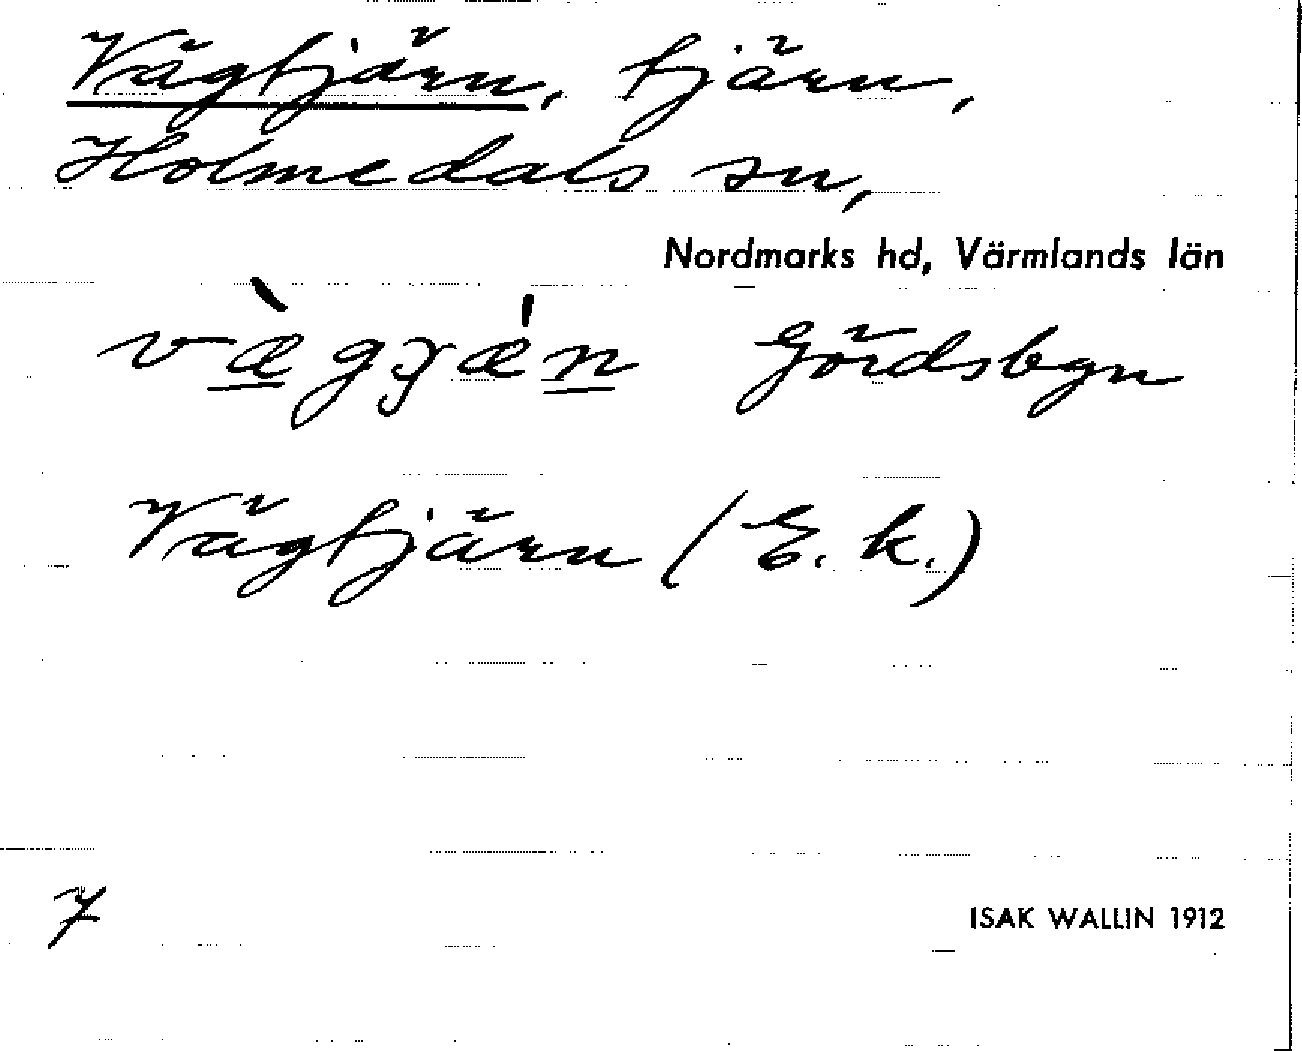 Vägtjärn, tjärn,
Holmedals sn,
Nordmarks hd, Värmlands län
væ̀gɟǽn Gördsbyn
Vägtjärn (E. k.)
7
ISAK WALLIN 1912